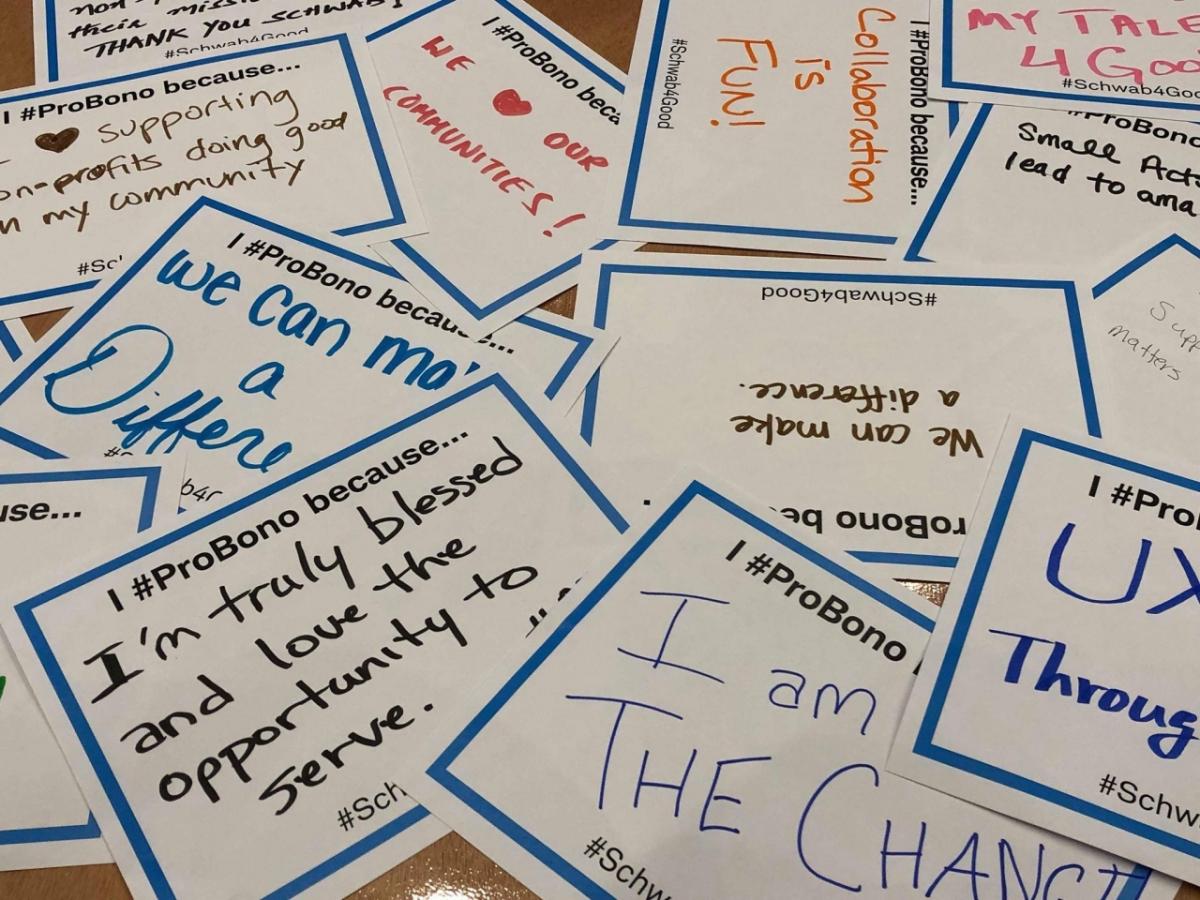 their
THANK YOU SCHWAB!
#Schwab4Good
I #ProBono because...
supporting
on-profits doing good
my community
#Sc
I #ProBono beca
WE OUR
COMMUNITIES!
I #ProBono because...
Collaboration
is
FUN!
#Schwab4Good
MY TALE
4 Goo
#Schwab4Goo
#ProBono
Small Acts
lead to ama
Supp
matters
I #ProBono becau
we can ma
a
Differe
roBono be
We can make
a difference.
#Schwab4Good
use...
I #ProBono because...
I'm truly blessed
and love the
opportunity to
serve.
#Sch
I #ProBono
I am
THE CHANG
#Schw
I #Pro
UX
Throug
#Schw